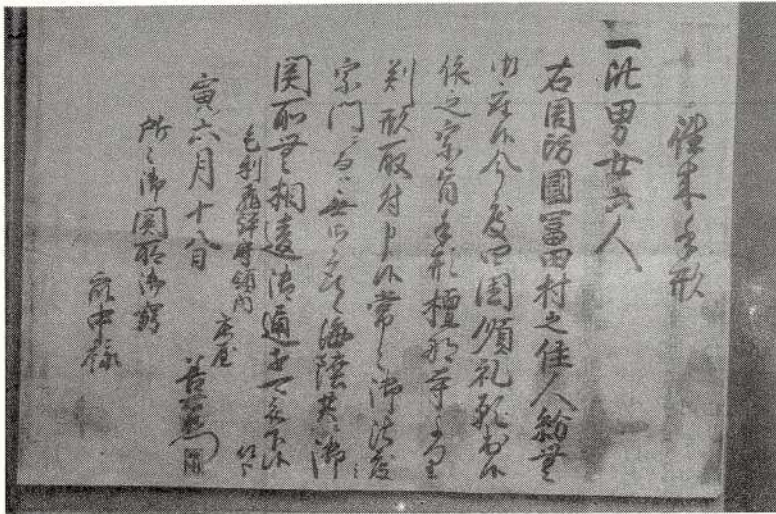 往来手形
一此男女六人
右周防國冨田村之住人紛無
御座候今度四国順礼罷出候
依之宗旨手形檀那寺より
判形取付申候常々御法度
宗門ニ而ハ無御座候海陸共ニ御
関所無相違御通可被下候
毛利飛騨守領内
庄屋
寅六月十八日
所々御関所御番
衆中様